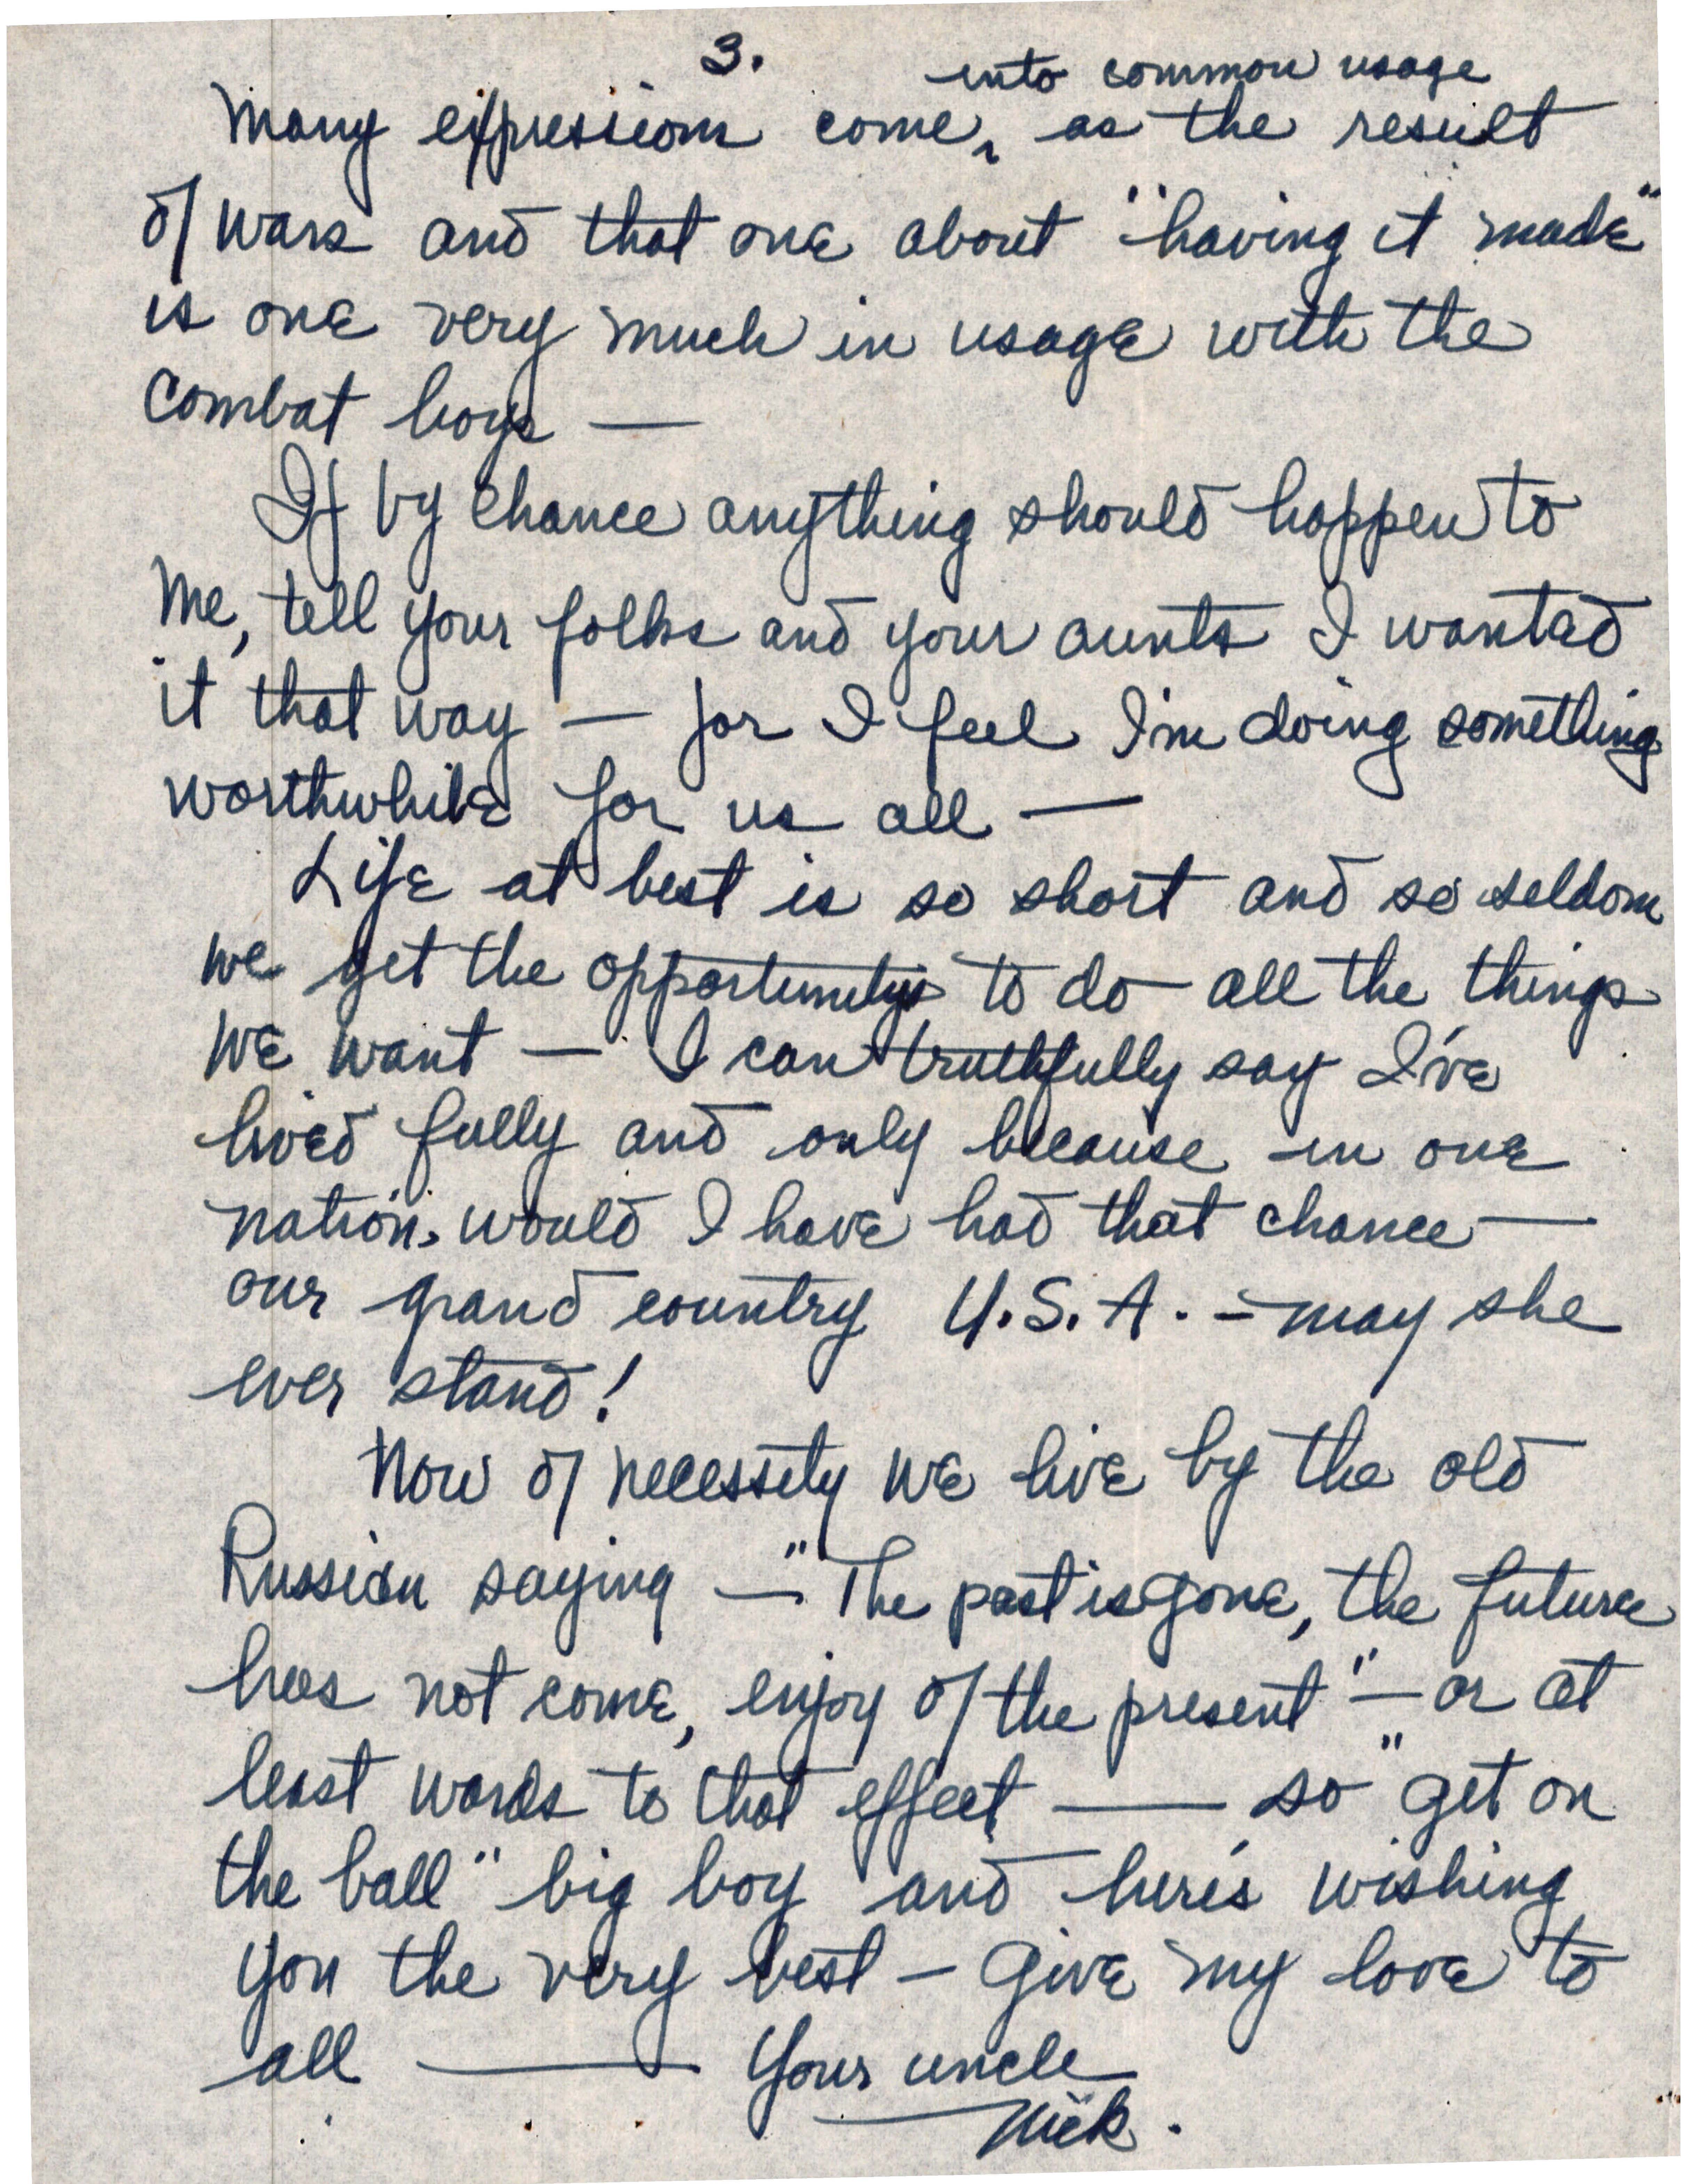 3.
into common usage
Many expressions come ‸ as the result
of wars and that one about "having it made"
is one very much in usage with the
combat boys —
If by chance anything should happen to
me, tell your folks and your aunts I wanted
it that way — for I feel I'm doing something
worthwhile for us all —
Life at best is so short and so seldom
we get the opportunity to do all the things
we want — I can truthfully say I've
lived fully and only because in one
nation would I have had that chance —
our grand country U.S.A. — may she
ever stand!
Now of necessity we live by the old
Russian saying — "The past is gone, the future
has not come, enjoy of the present" — or at
least words to that effect — so "get on
the ball" big boy and here's wishing
you the very best — Give my love to
all — Your uncle
Nick.